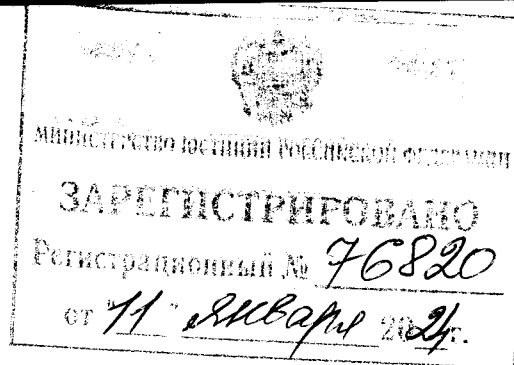 МИНИСТЕРСТВО ЮСТИЦИИ РОССИЙСКОЙ ФЕДЕРАЦИИ
ЗАРЕГИСТРИРОВАНО
Регистрационный № 76820
от "11" января 2024г.